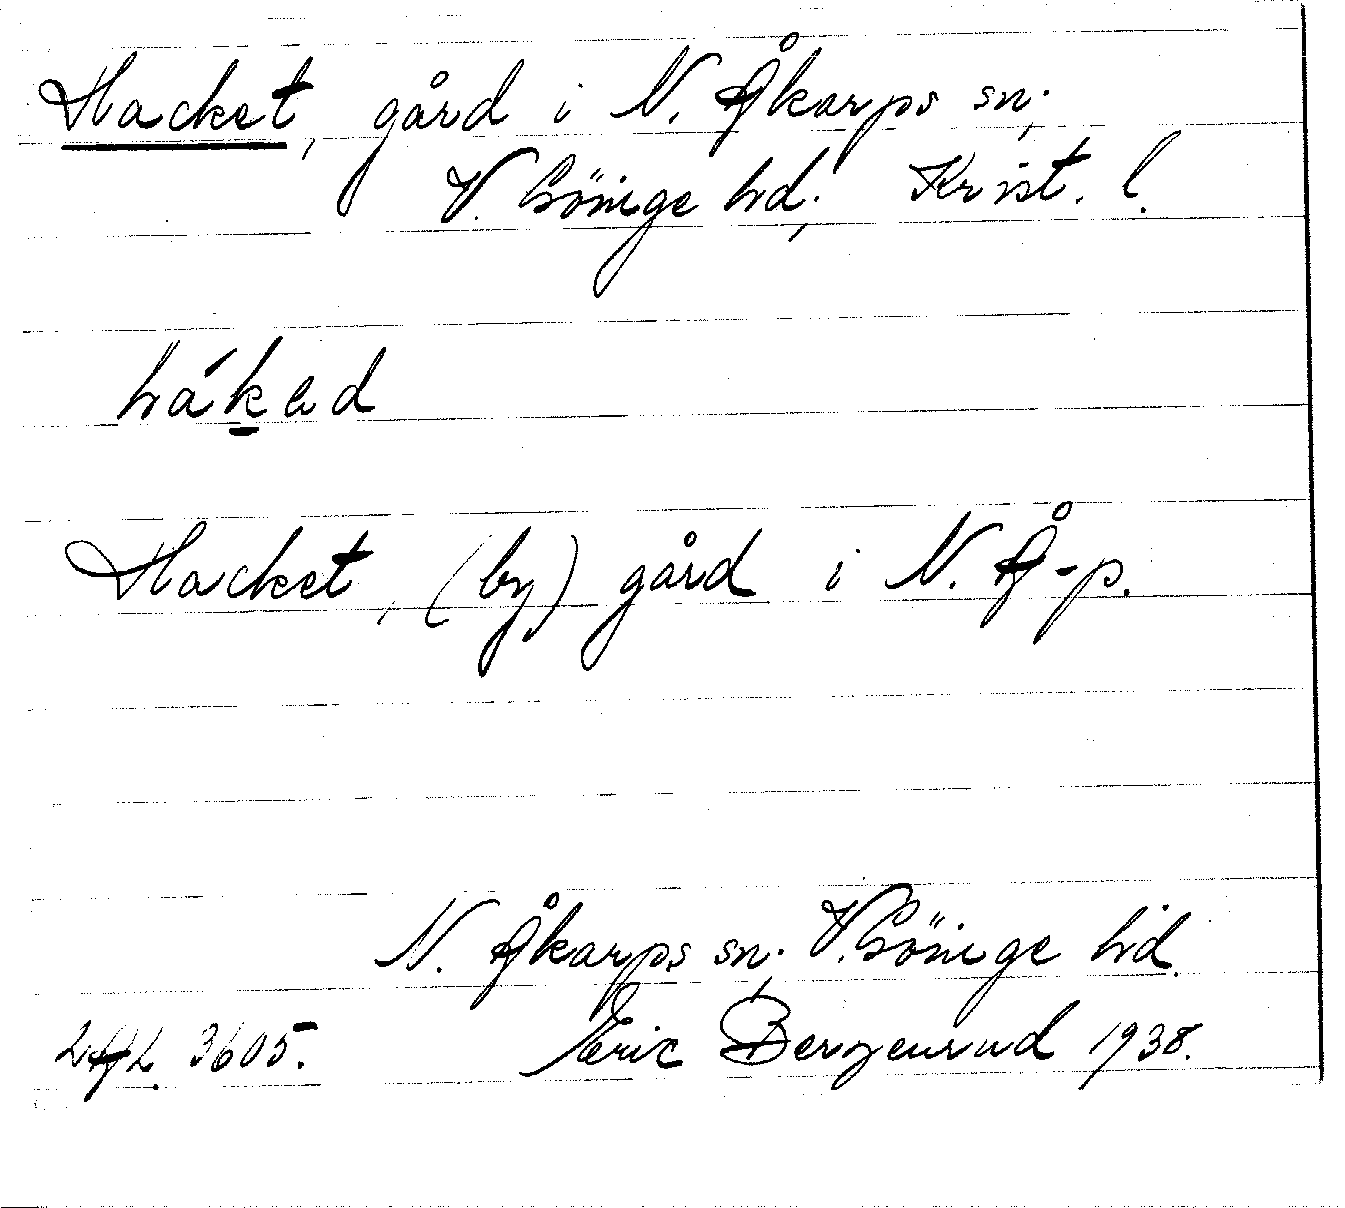 Hacket, gård i N. Åkarps sn;
V. Göinge hd; Krist. l.
hákad
Hacket, (by) gård i N. Å-p.
N. Åkarps sn; V. Göinge hd.
LAL 3605. Eric Bergenrud 1938.